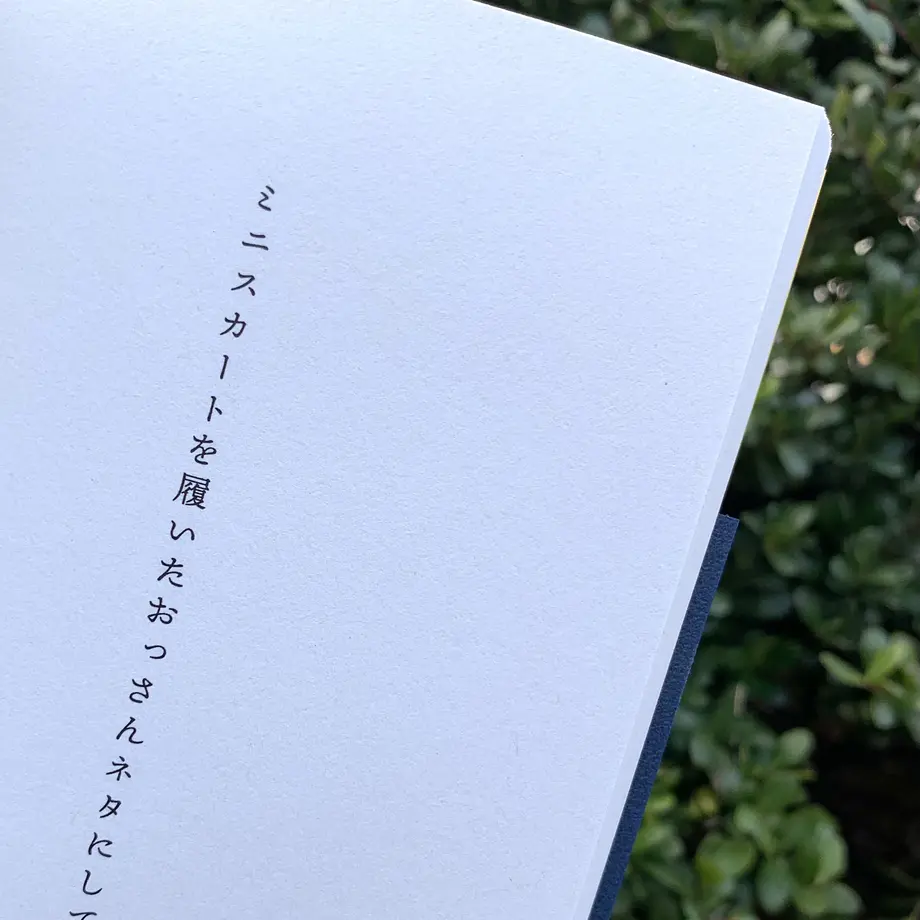 ミニスカートを履いたおっさんネタにして